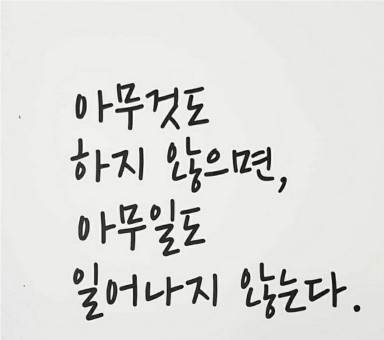 아무것도
하지 않으면,
아무일도
일어나지 않는다.